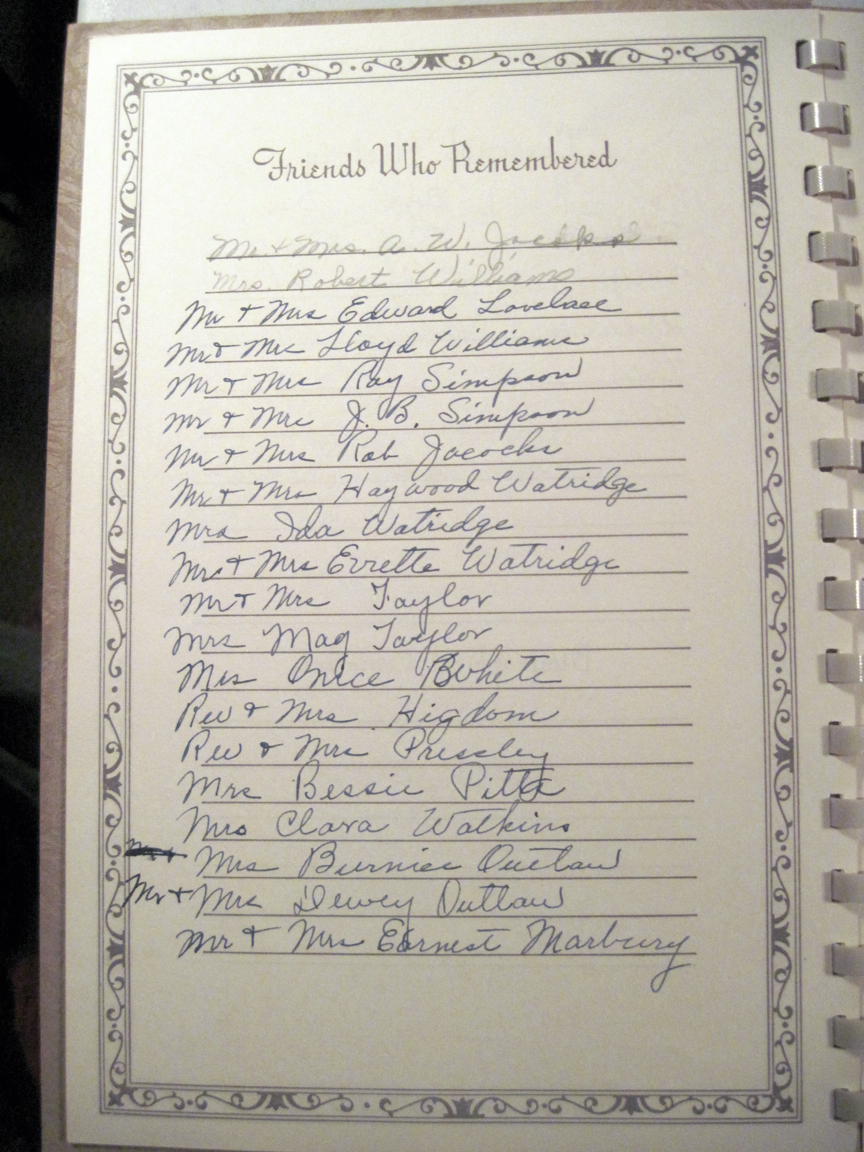 Friends Who Remembered
Mr. & Mrs. A. W.
Mrs. Robert Williams
Mr + Mrs Edward Lovelace
Mr + Mrs Lloyd Williams
Mr + Mrs Ray Simpson
Mr + Mrs J. B. Simpson
Mr + Mrs Rob Jacocks
Mr + Mrs Haywood Watridge
Mrs Ida Watridge
Mr + Mrs Evrette Watridge
Mr + Mrs Taylor
Mrs Mag Taylor
Mrs Onice
Rev & Mrs Higdom
Rev & Mrs Pressley
Mrs Bessie Pitts
Mrs Clara Watkins
Mrs Burnice Outlaw
Mr + Mrs Dewey Outlaw
Mr + Mrs Earnest Marbury